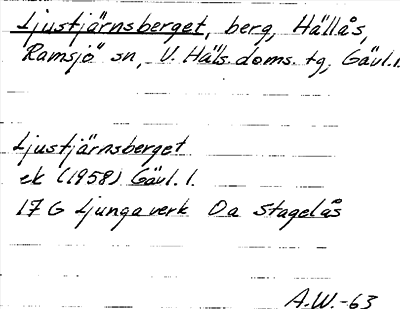 Ljustjärnsberget, berg, Hällås,
Ramsjö sn, V. Häls. doms. tg, Gävl.l.
Ljustjärnsberget
ek (1958) Gävl. l.
17 G Ljungaverk Oa Stagelås
A.W.-63